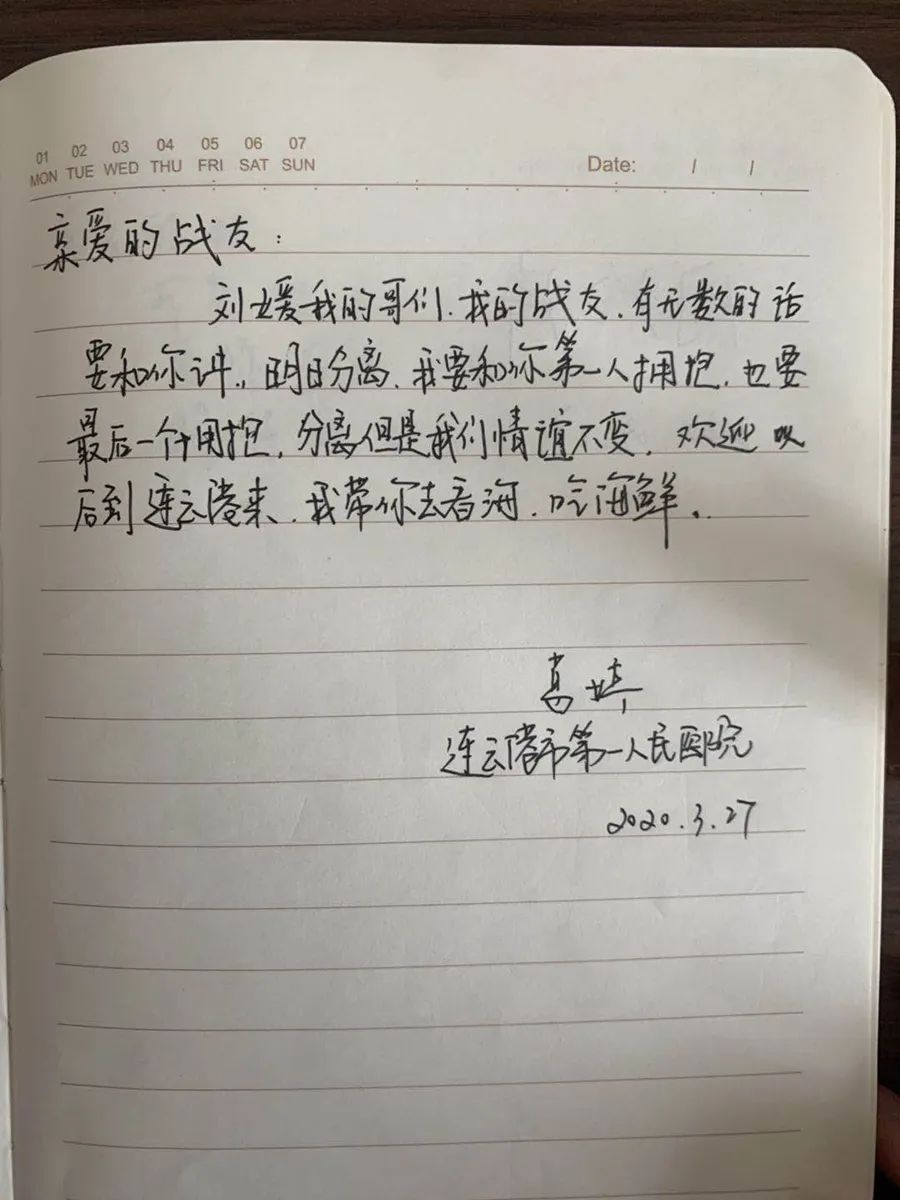 01 02 03 04 05 06 07
MON TUE WED THU FRI SAT SUN Date: / /
亲爱的战友：
刘媛我的哥们、我的战友、有无数的话
要和你讲。明日分离、我要和你第一人拥抱、也要
最后一个拥抱、分离但是我们情谊不变、欢迎以
后到连云港来、我带你去看海、吃海鲜。
葛婷
连云港市第一人民医院
2020.3.27